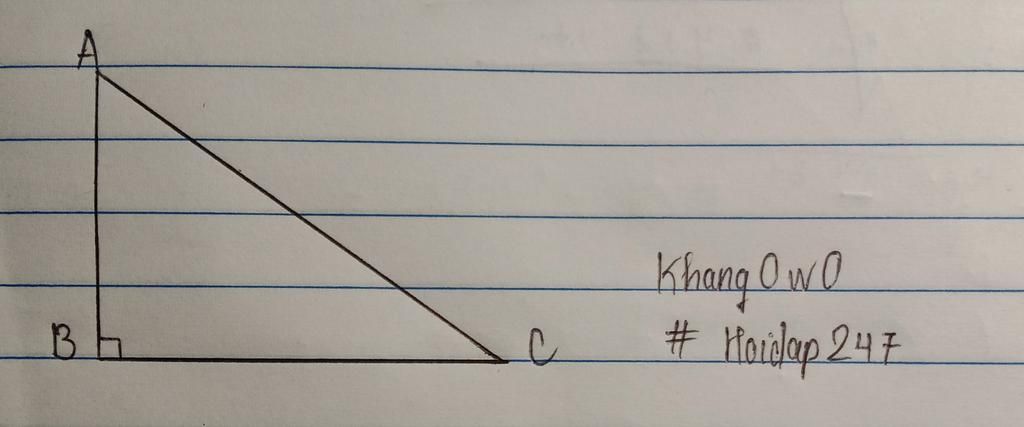 A
B
C
Khang OwO
# Hoidap 247